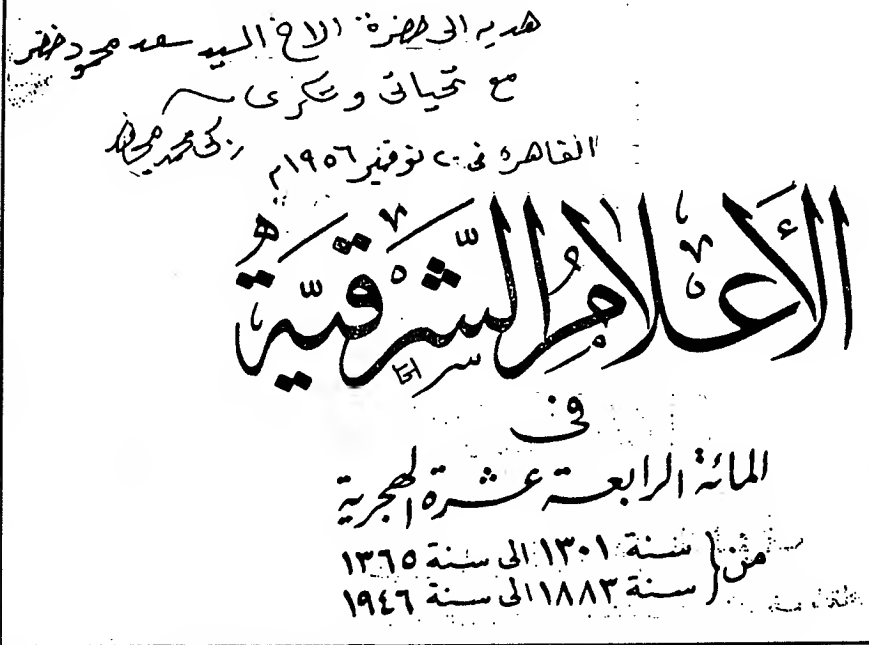 هديه الى حضرة الاخ السيد سعد محمود خضر
مع تحياتى وشكرى
زكى محمد مجاهد
القاهرة فى ٢٠ نوفمبر ١٩٥٦م
الأَعْلامُ الشَّرْقِيَّةُ
فى
المائة الرابعة عشرة الهجرية
من { سنة ١٣٠١ الى سنة ١٣٦٥
سنة ١٨٨٣ الى سنة ١٩٤٦